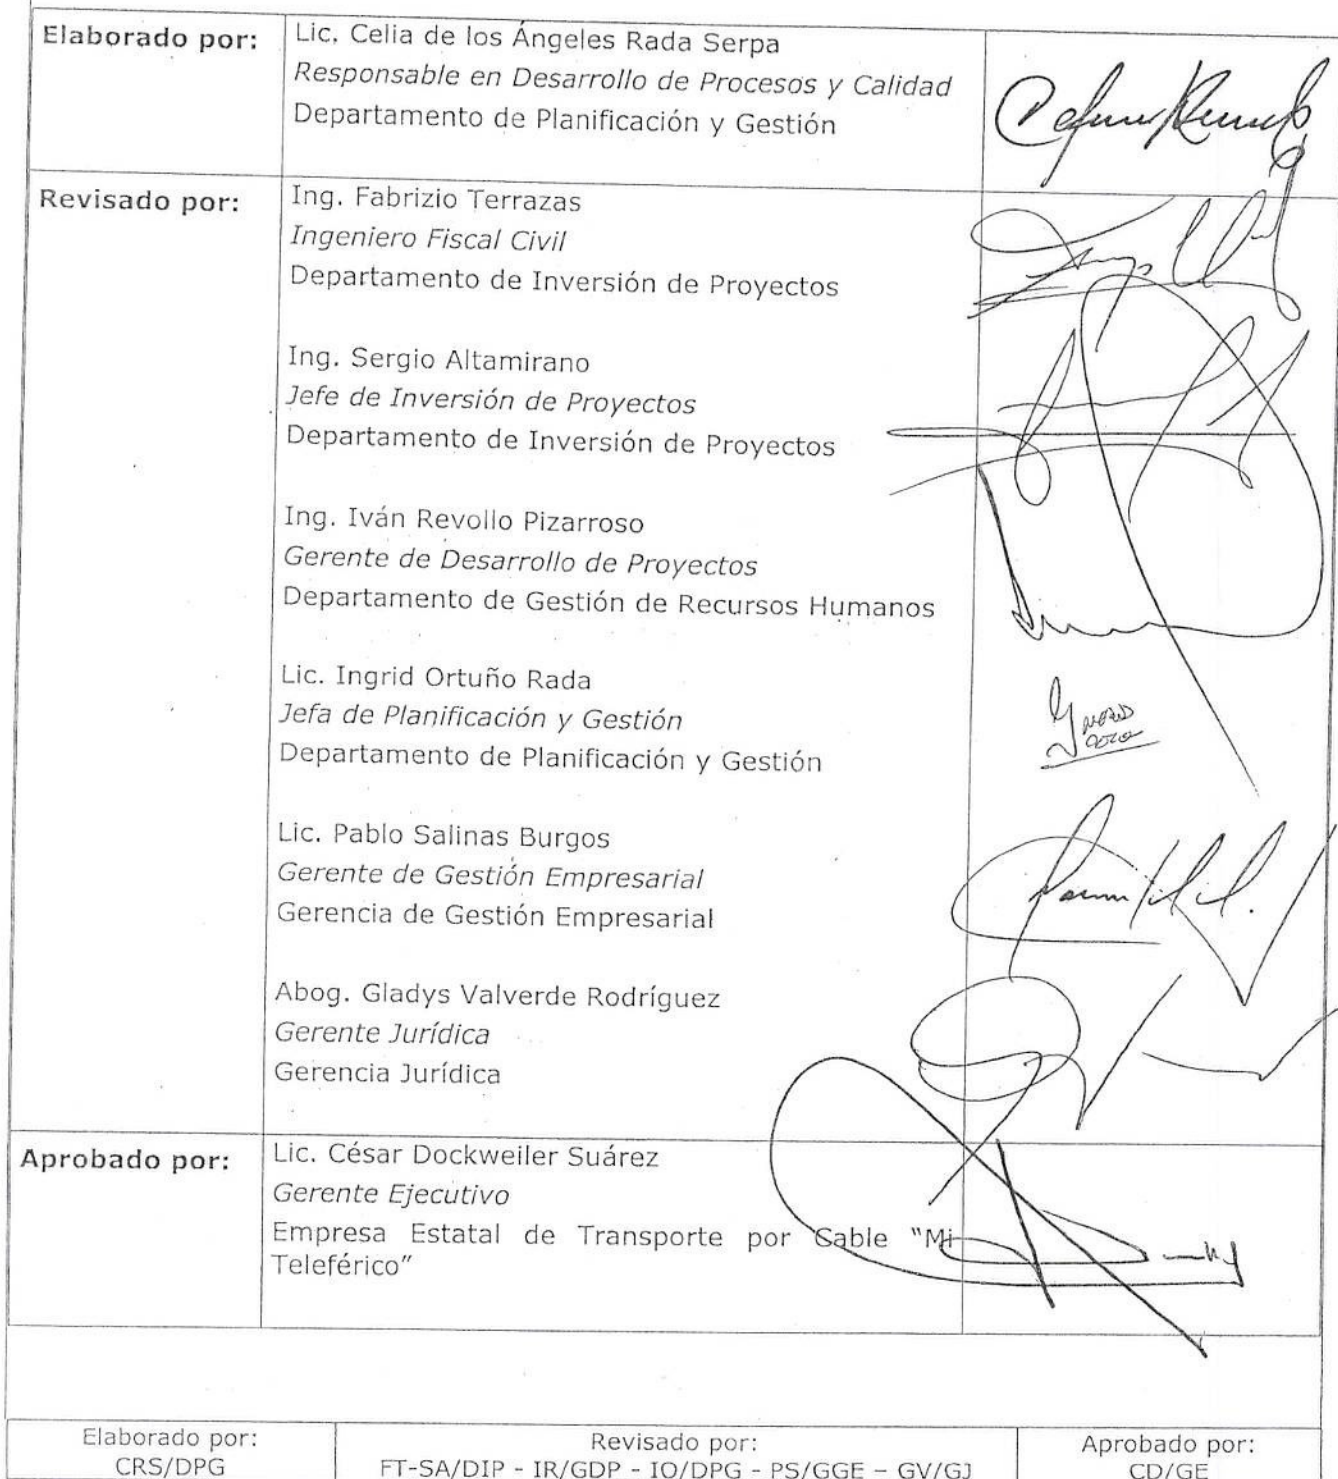 Elaborado por:
Lic. Celia de los Ángeles Rada Serpa
Responsable en Desarrollo de Procesos y Calidad
Departamento de Planificación y Gestión
Revisado por:
Ing. Fabrizio Terrazas
Ingeniero Fiscal Civil
Departamento de Inversión de Proyectos
Ing. Sergio Altamirano
Jefe de Inversión de Proyectos
Departamento de Inversión de Proyectos
Ing. Iván Revollo Pizarroso
Gerente de Desarrollo de Proyectos
Departamento de Gestión de Recursos Humanos
Lic. Ingrid Ortuño Rada
Jefa de Planificación y Gestión
Departamento de Planificación y Gestión
Lic. Pablo Salinas Burgos
Gerente de Gestión Empresarial
Gerencia de Gestión Empresarial
Abog. Gladys Valverde Rodríguez
Gerente Jurídica
Gerencia Jurídica
Aprobado por:
Lic. César Dockweiler Suárez
Gerente Ejecutivo
Empresa Estatal de Transporte por Cable "Mi
Teleférico"
Elaborado por:
CRS/DPG
Revisado por:
FT-SA/DIP - IR/GDP - IO/DPG - PS/GGE – GV/GJ
Aprobado por:
CD/GE